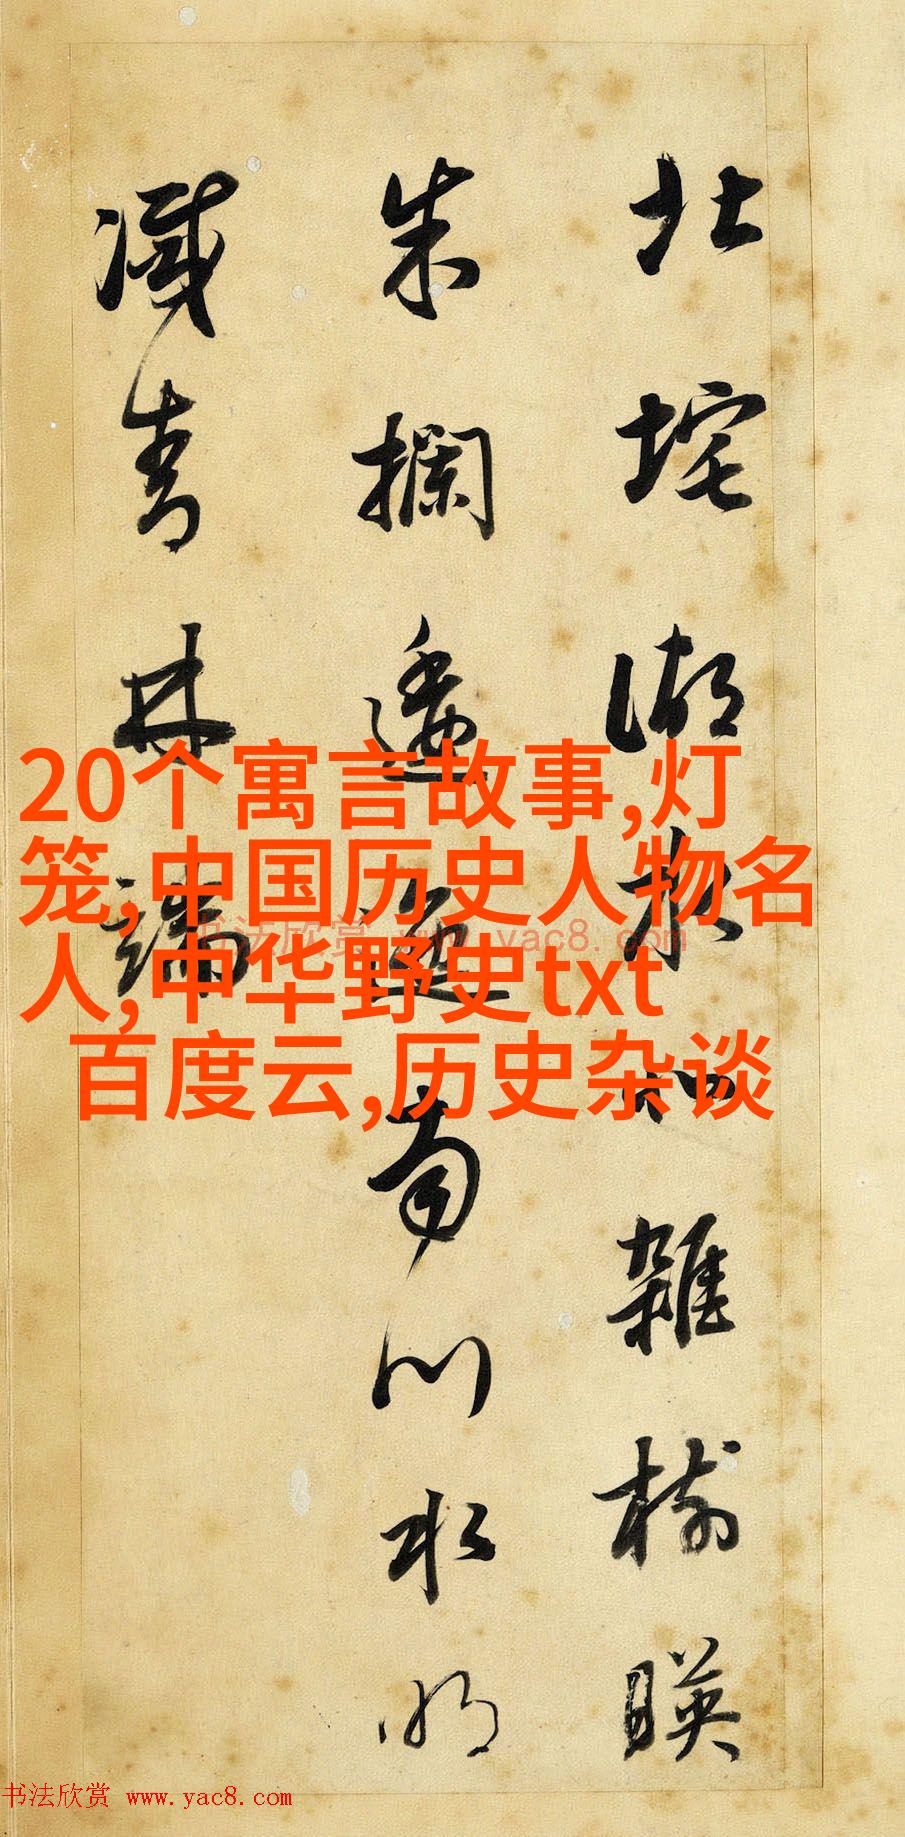 北垞湖水北雜樹暎
朱欄逶迤南川水明
滅青林端
20个寓言故事,灯
笼,中国历史人物名
人,中华野史txt
百度云,历史杂谈
书法欣赏 www.yac8.com
书法欣赏 www.yac8.com